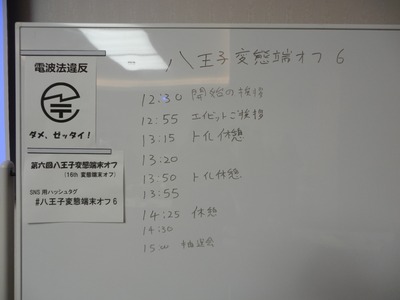 八王子変態端オフ6
電波法違反
ダメ、ゼッタイ!
第六回八王子変態端末オフ
(16th 変態端末オフ)
SNS 用ハッシュタグ
#八王子変態端末オフ6
12:30 開始の挨拶
12:55 エイビットご挨拶
13:15 トイレ休憩
13:20
13:50 トイレ休憩
13:55
14:25 休憩
14:30
15:00 抽選会